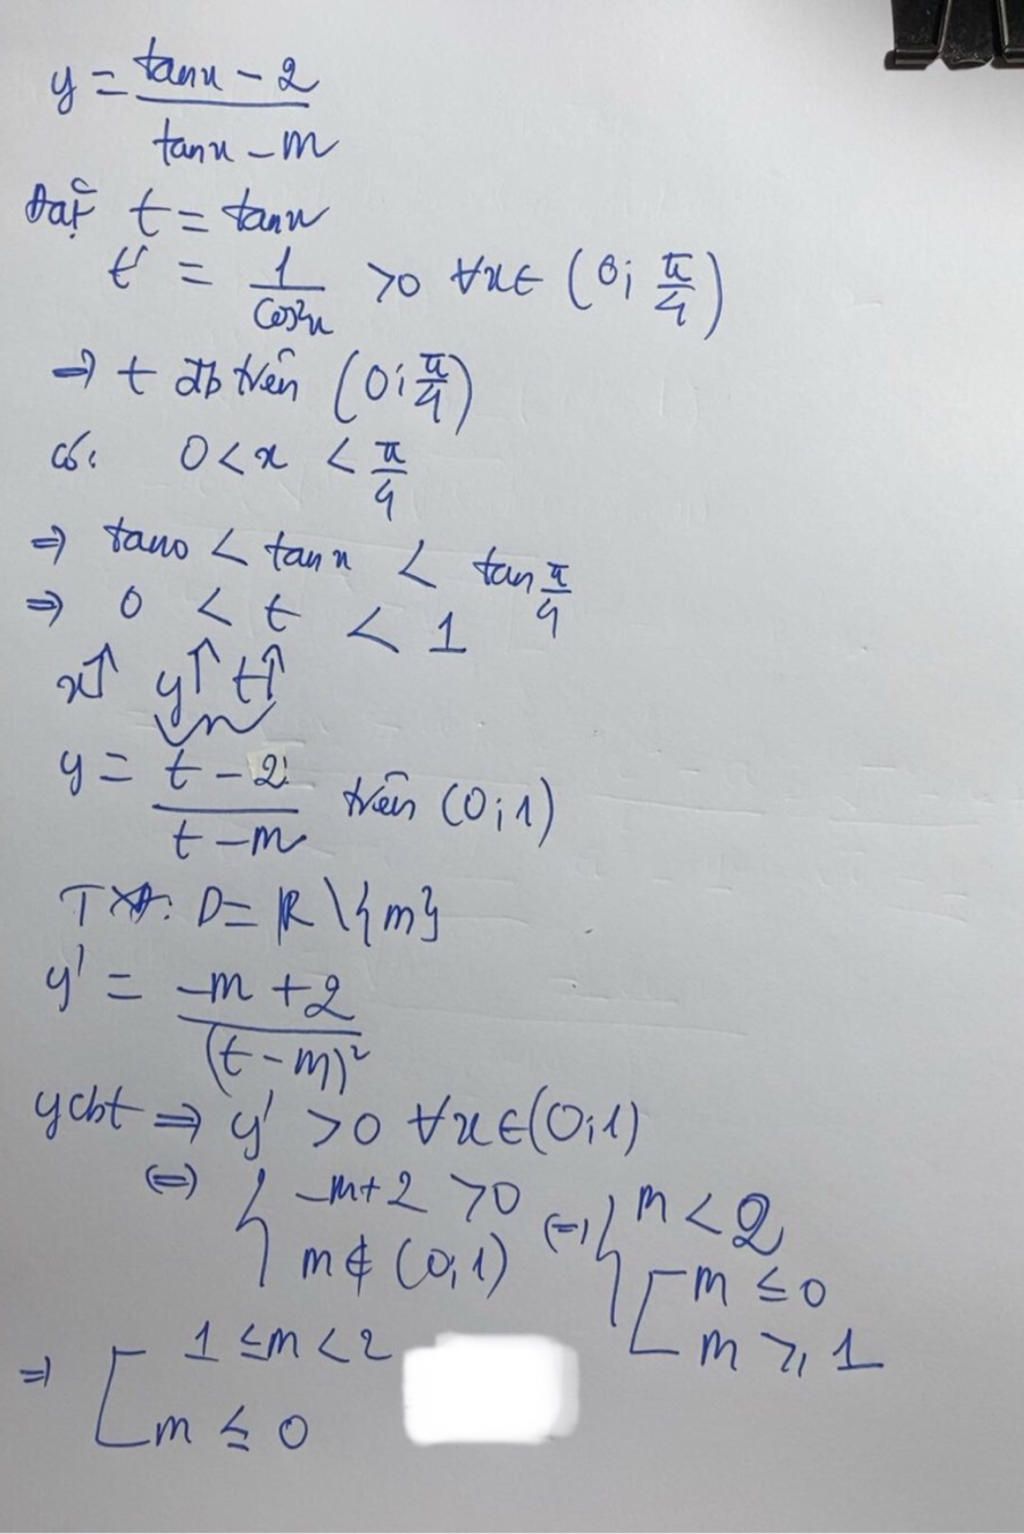 y = \frac{tanx - 2}{tanx - m}
Đặt t = tanx
t' = \frac{1}{cos²x} >0 ∀x∈ (0; \frac{π}{4})
⇒ t đb trên (0; \frac{π}{4})
có: 0 < x < \frac{π}{4}
⇒ tan0 < tanx < tan\frac{π}{4}
⇒ 0 < t < 1
x↑ y↑ t↑
y = \frac{t - 2}{t - m} trên (0;1)
TXĐ: D = ℝ \ {m}
y' = \frac{-m + 2}{(t - m)²}
ycbt ⇒ y' >0 ∀x∈(0;1)
(=) { -m+2 >0 (=) { m < 2
m ∉ (0;1) [ m ≤ 0
m ≥ 1
⇒ [ 1 ≤ m < 2
m ≤ 0